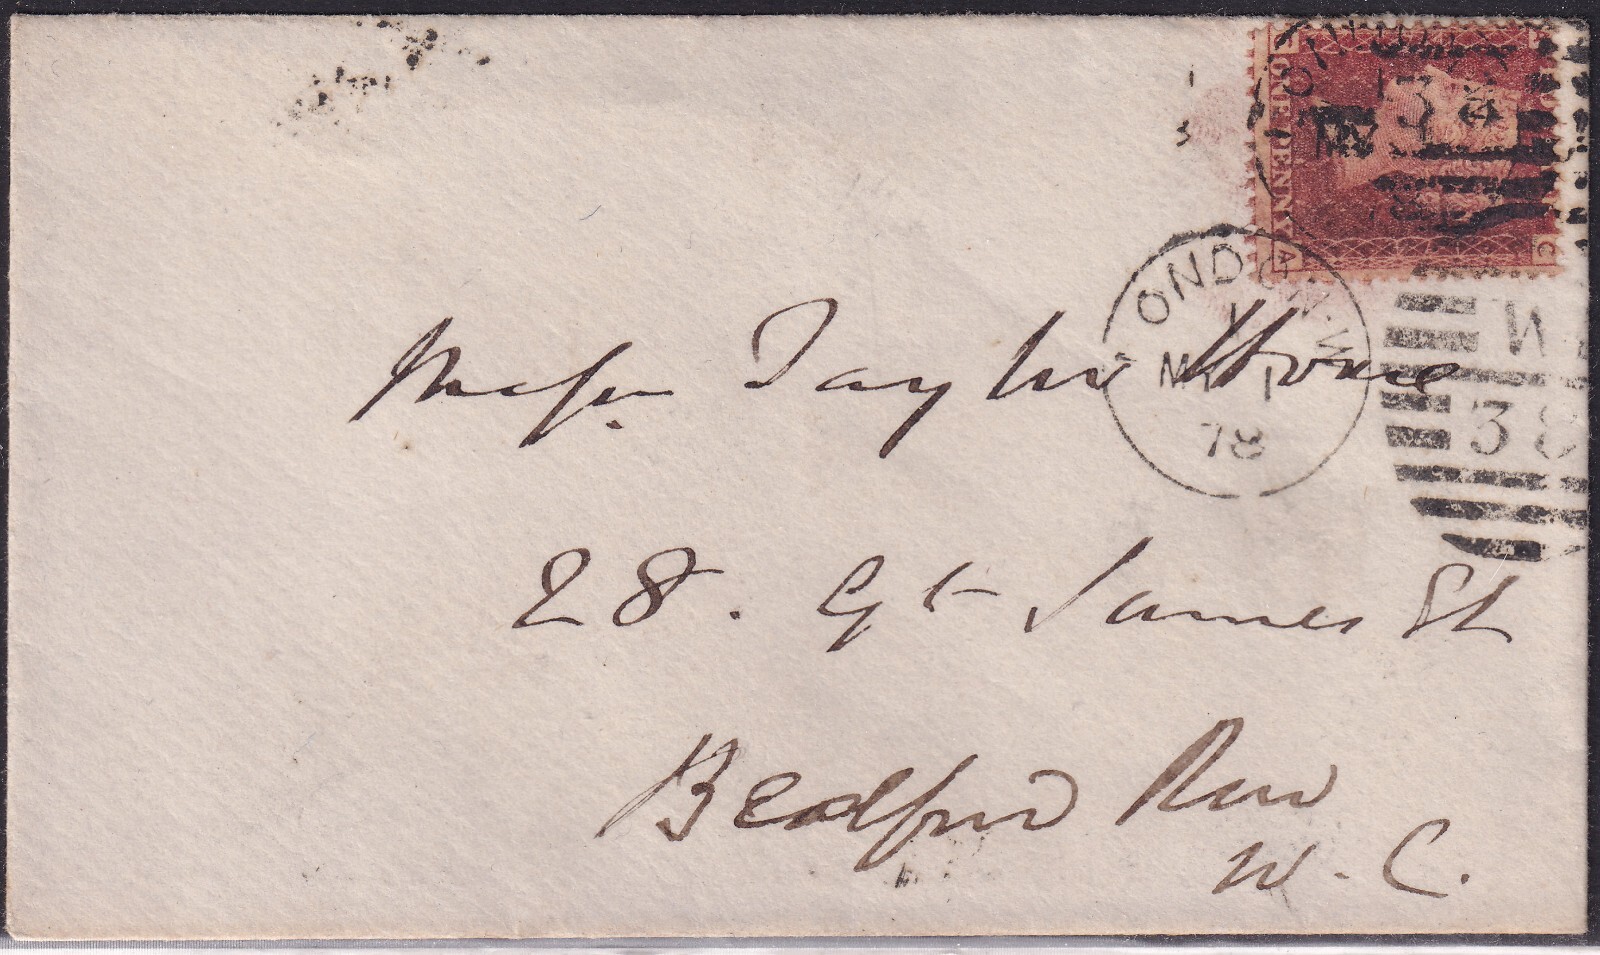 ONE PENNY
A
C
LONDON·W
MY 1
78
W
38
Messrs. Taylor Hoare
28. Gt James St
Bedford Row
W.C.